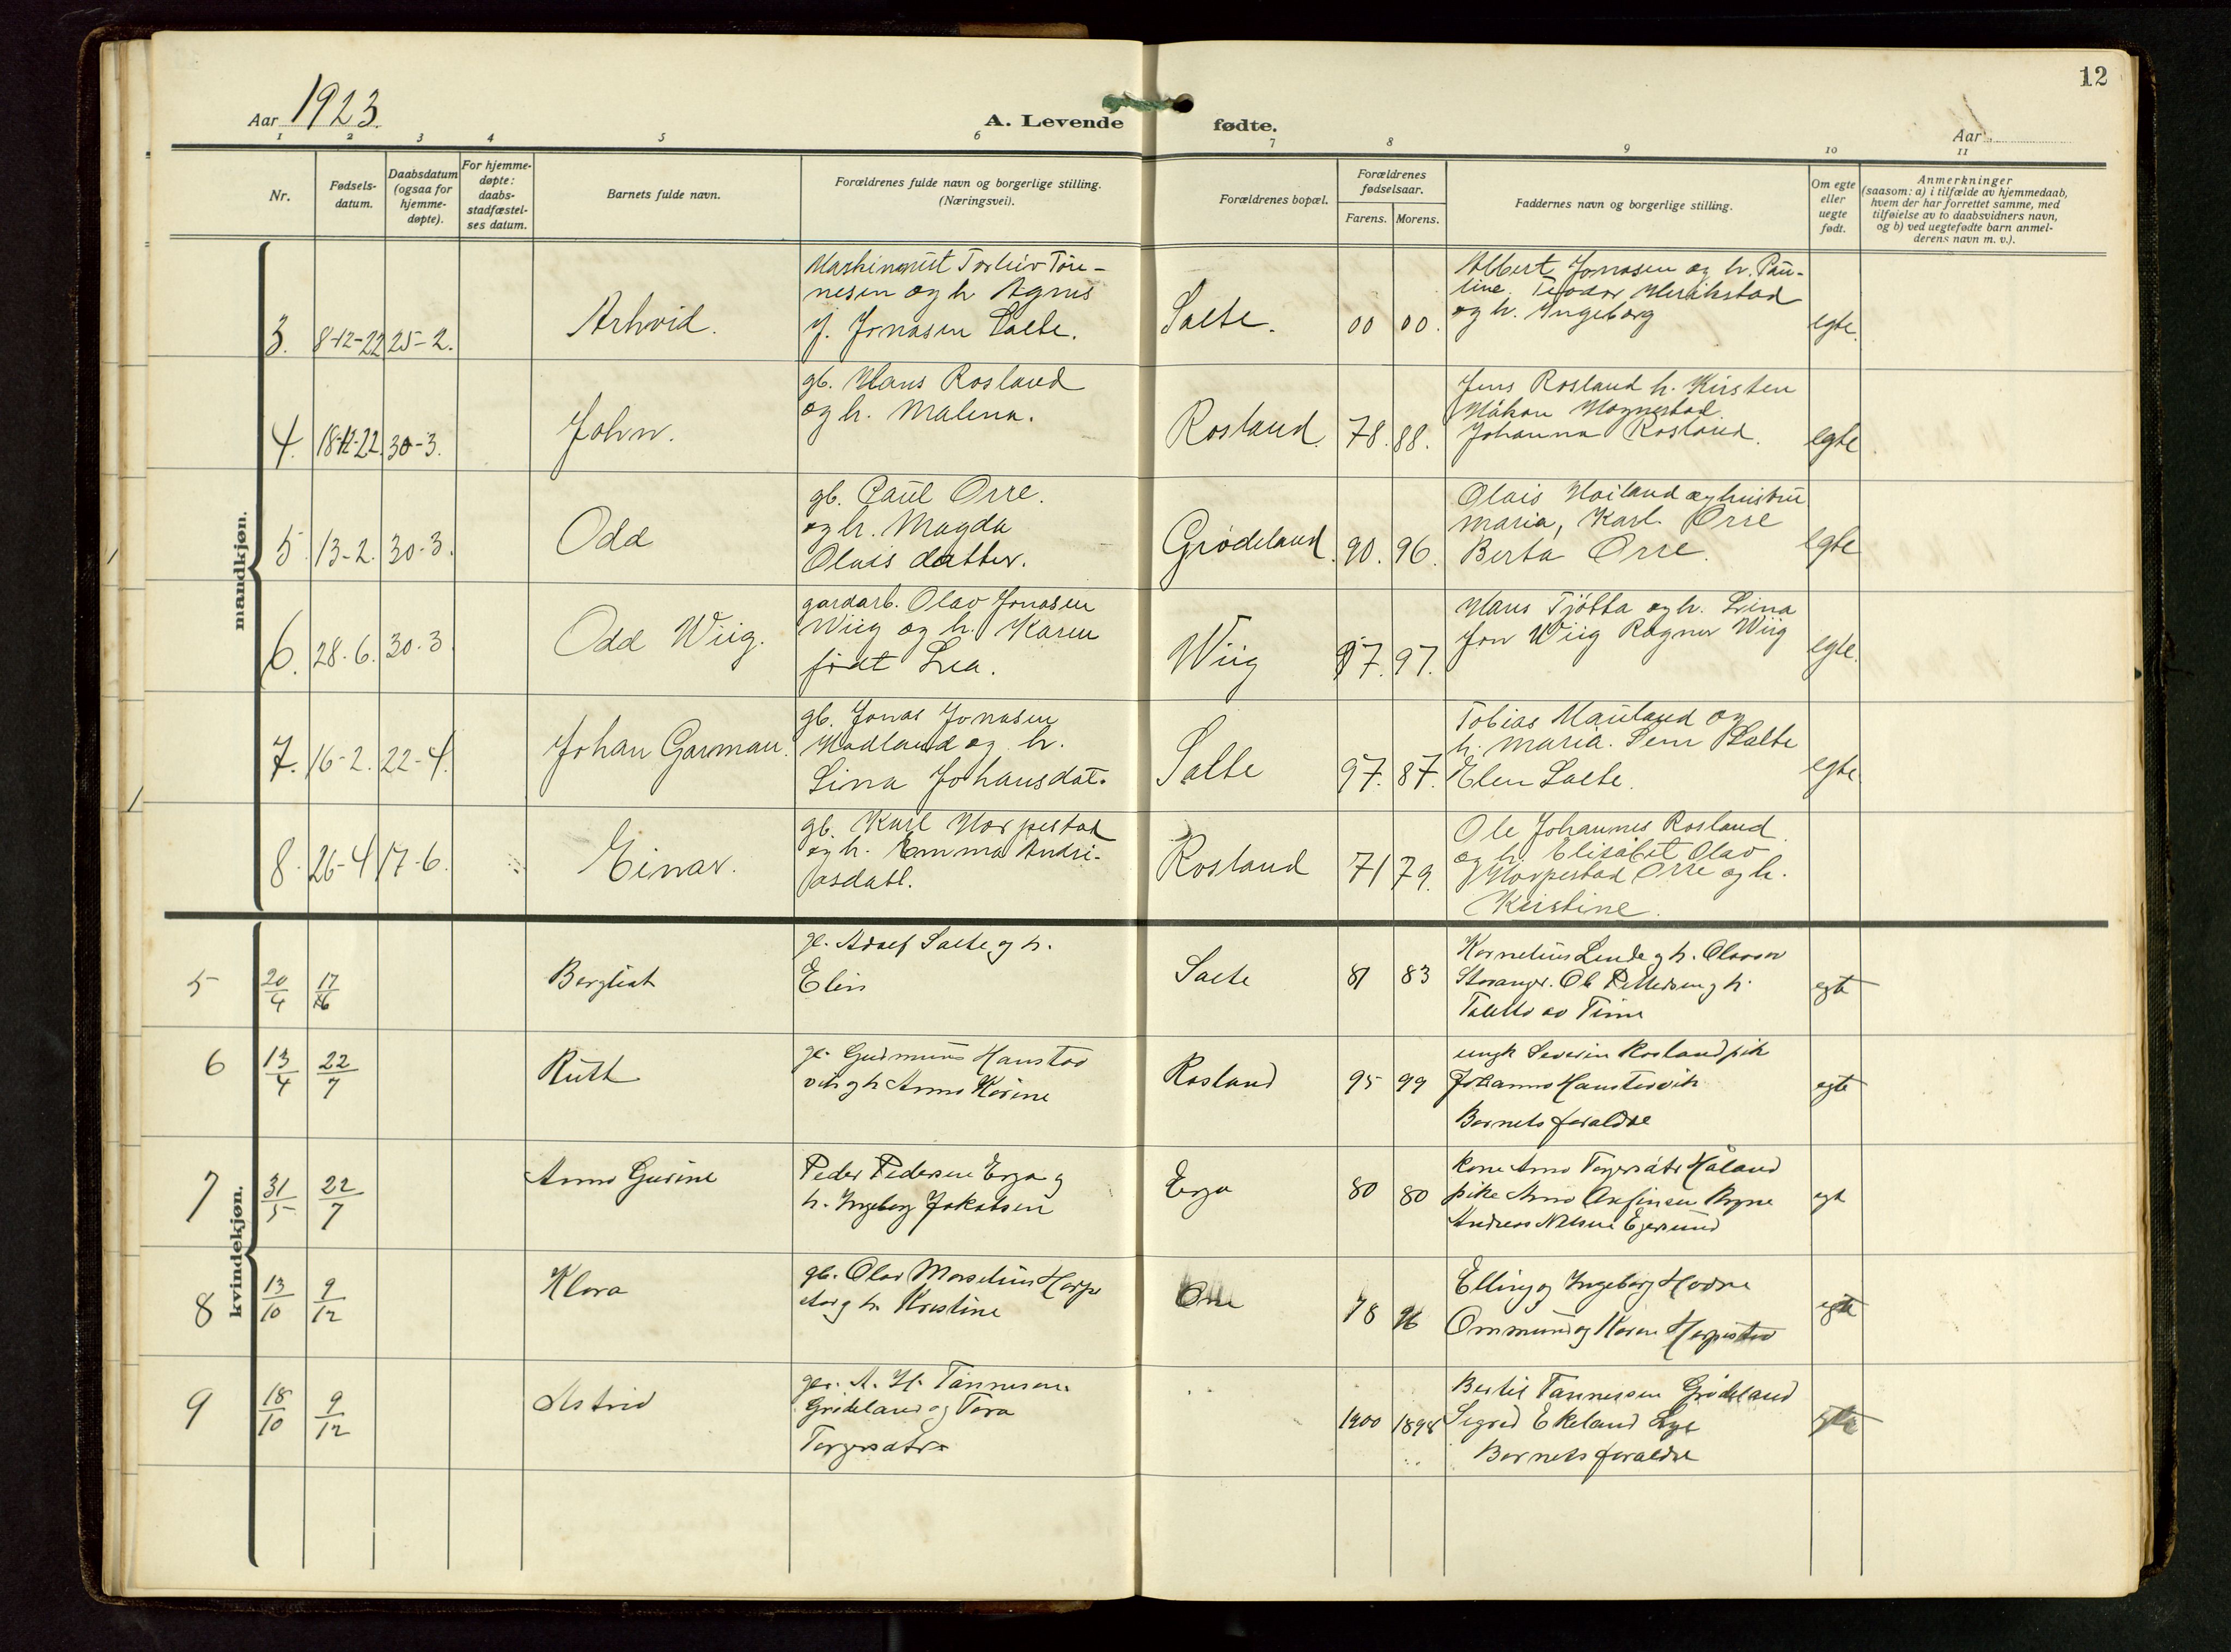 12
Aar 1923.
A. Levende fødte.
Aar
1 2 3 4 5 6 7 8 9 10 11
Nr.
Fødsels-
datum.
Daabsdatum
(ogsaa for
hjemme-
døpte).
For hjemme-
døpte:
daabs-
stadfæstel-
ses datum.
Barnets fulde navn.
Forældrenes fulde navn og borgerlige stilling.
(Næringsvei).
Forældrenes bopæl.
Forældrenes
fødselsaar.
Farens. Morens.
Faddernes navn og borgerlige stilling.
Om egte
eller
uegte
født.
Anmerkninger
(saasom: a) i tilfælde av hjemmedaab,
hvem der har forrettet samme, med
tilføielse av to daabsvidners navn,
og b) ved uegtefødte barn anmel-
derens navn m. v.).
mandkjøn.
3. 8-12-22 25-2.
Arhvid.
Maskinmist Torleiv Tøn-
nesen og h Agnes
f. Jonasen Salte.
Salte.
00 00.
Albert Jonasen og h. Pau-
line. Teodor
og h. Ingeborg
egte.
4. 18-12-22. 30-3.
John.
gb. Hans Rosland
og h. Malena.
Rosland.
78. 88.
Jens Rosland h. Kirsten
Håkon Hognestad.
Johanna Rosland.
egte
5. 13-2. 30-3.
Odd
gb. Paul Orre.
og h. Magda
Olais datter.
Grødeland.
90. 96.
Olais Hoiland og hustru
Maria, Karl Orre
Berta Orre.
egte
6. 28-6. 30-3.
Odd Wiig.
gardarb. Olav Jonasen
Wiig og h. Karen
født Lea.
Wiig
97. 97.
Hans Tjøtta og h. Lina
Jon Wiig Ragner Wiig
egte.
7. 16-2. 22-4.
Johan Garman.
gb. Jonas Jonasen
Madland og h.
Lina Johansdat.
Salte
97. 87.
Tobias Mauland og
h. Maria. Salte
Elen Salte.
egte
8. 26-4 17-6.
Einar.
gb. Karl Horpestad
og h. Emma Andri-
asdatt.
Rosland
71 79.
Ole Johannes Rosland
og h. Elisabet Olav
Horpestad Orre og h.
Kirstine.
kvindekjøn.
5 20/4 17/6
Bergliot
Adolf Salte og h.
Elin
Salte
81 83
Kornelius Lende og h.
Stavanger. Ole Pettersen og h.
av Time
egte
6 13/4 22/7
Ruth
Gudmund Haustve
vik og h Anna Karine
Rosland
95 99
ungk Severin Rosland pik
Johanna Haustveit
Barnets foraldre
egte
7 31/5 22/7
Anna Gurine
Peder Pedersen Erga og
h. Ingeborg Jakobsen
Erga
80 80
kone Anna Håland
pike Anna Bryne
Andreas Nilsen Egersund
egte
8 13/10 9/12
Klara
gb. Olav Marselius Horpe
stad og h. Kristine
Orre
78
Elling og Ingeborg Hodne
Ommund og Karen Horpestad
egte
9 18/10 9/12
Astrid
A. H. Tønnesen
Grødeland og Tora
Torgersdatr
1900 1898
Bertil Tønnesen Grødeland
Sigrid Ekeland Lye
Barnets foraldre